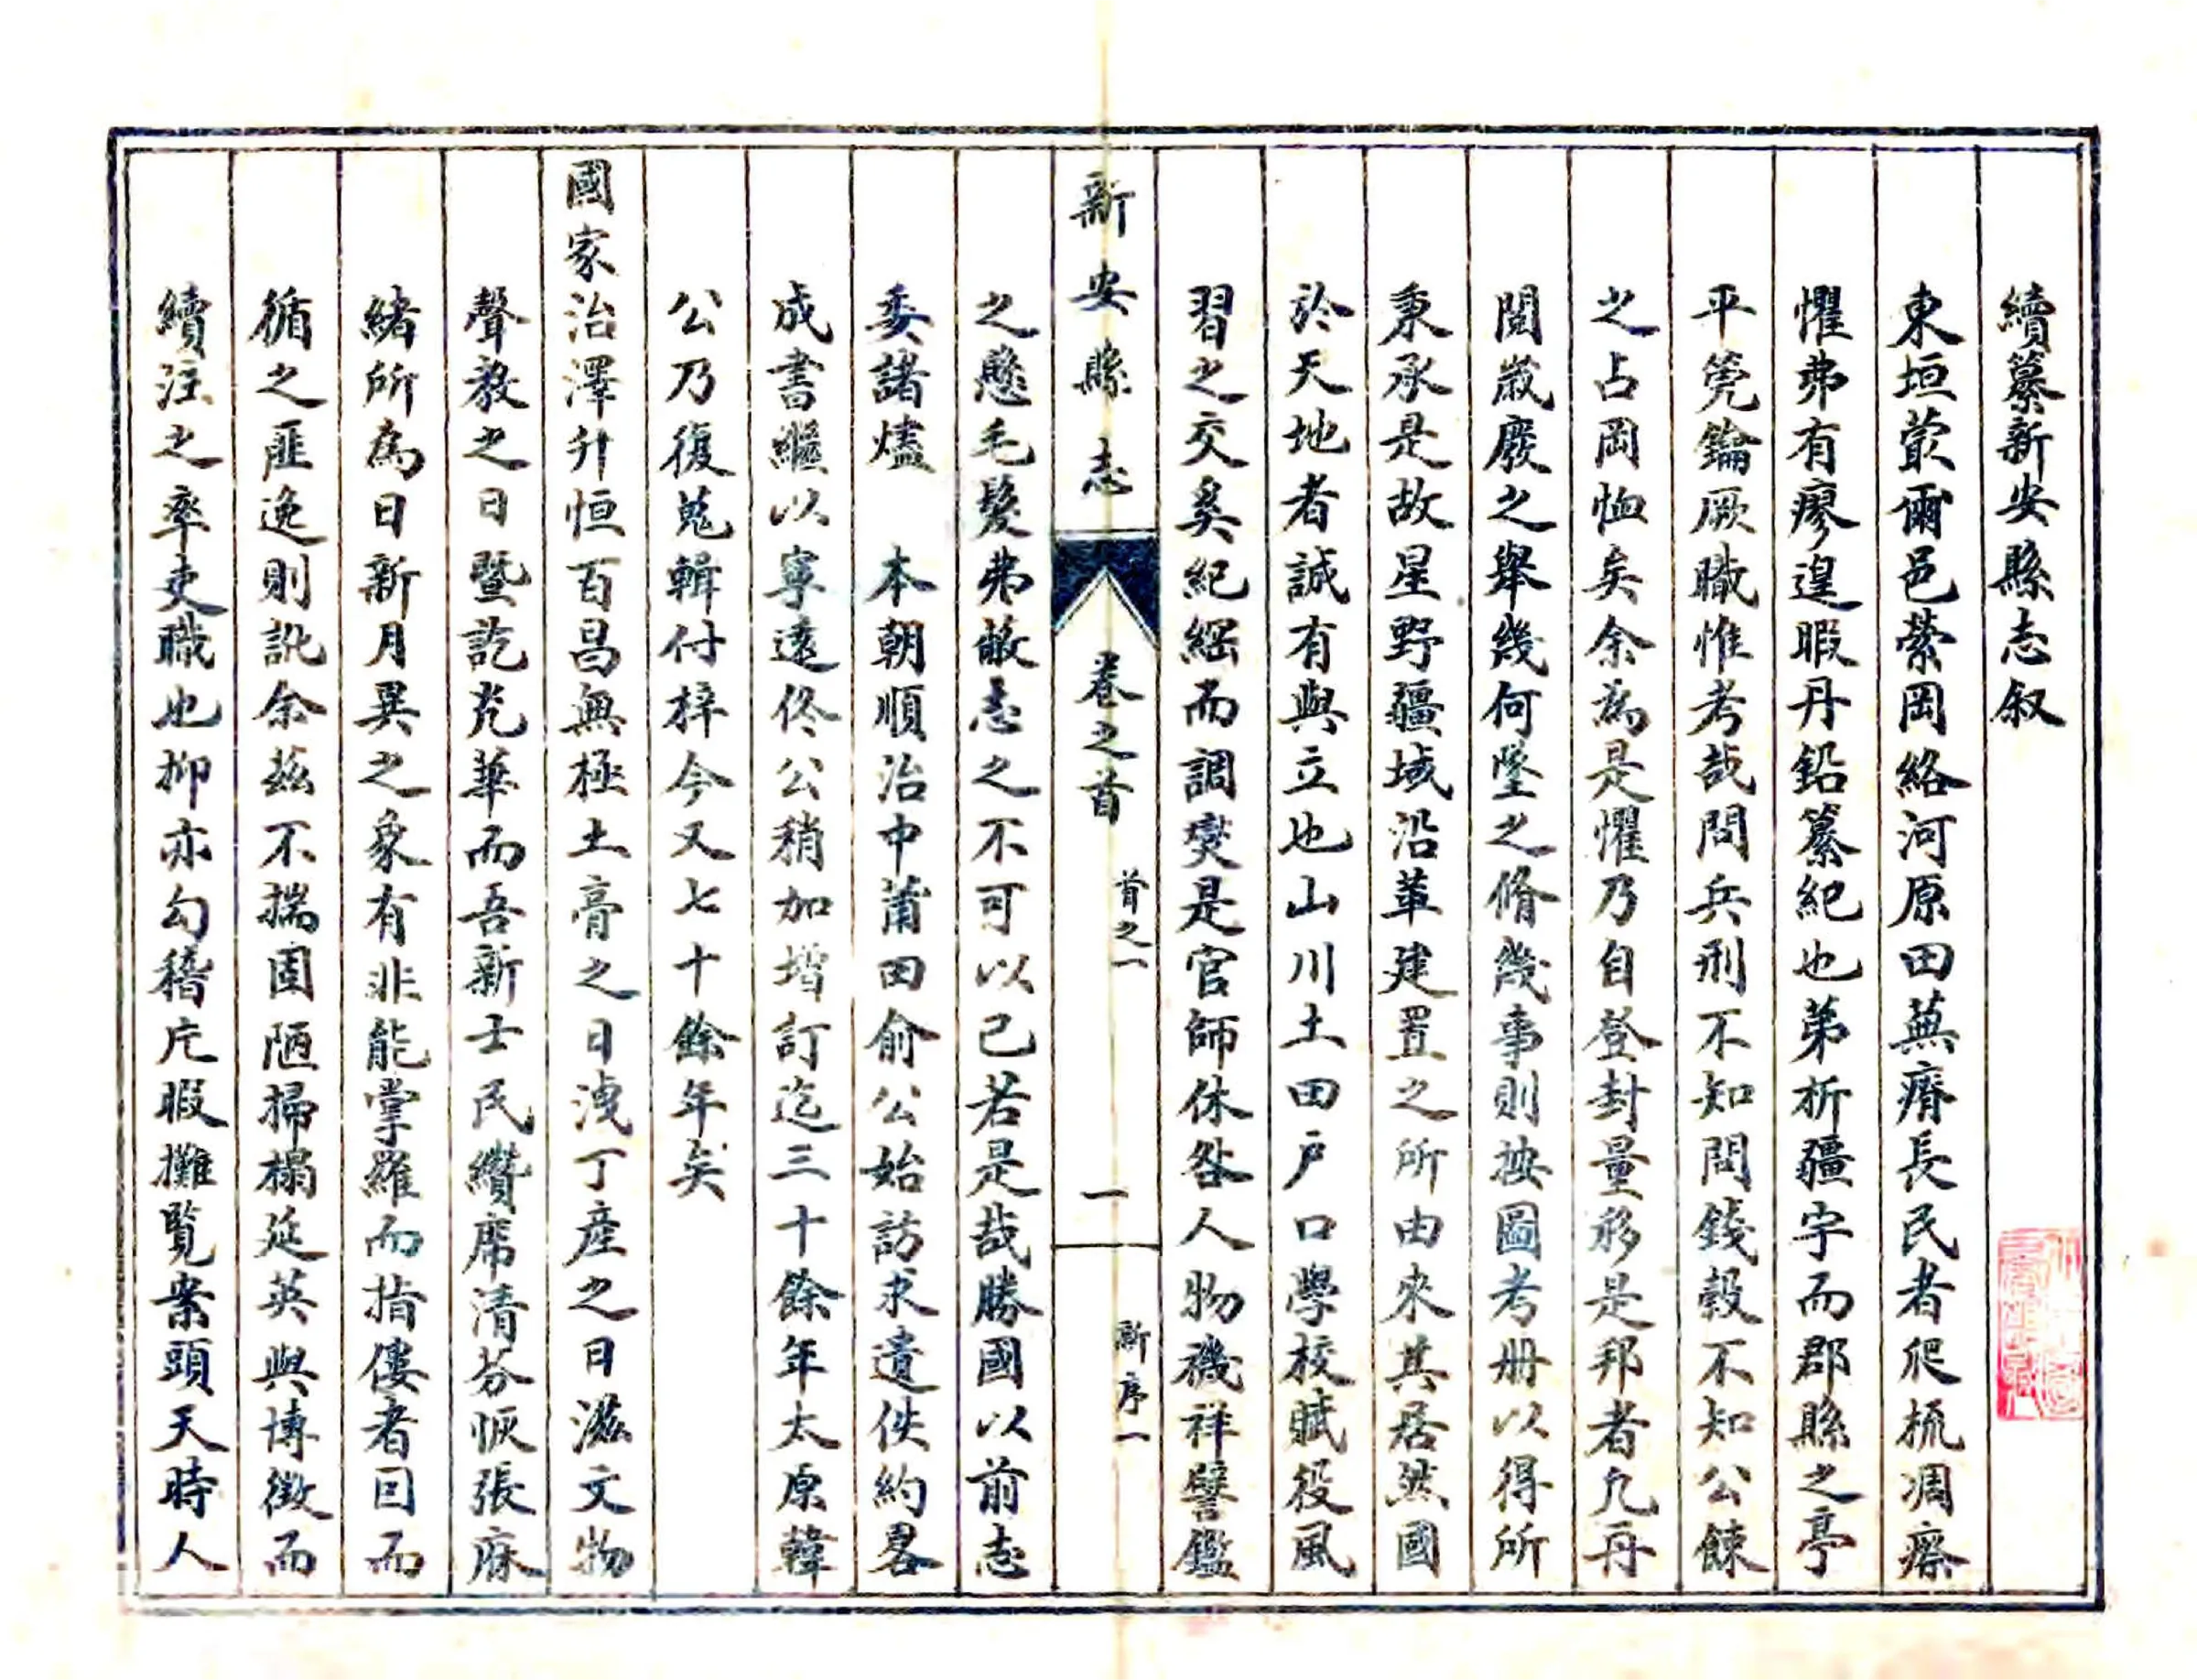 續纂新安縣志叙
東垣蕞爾邑縈岡絡河原田蕪瘠長民者爬梳凋瘵
懼弗有廖遑暇丹鉛纂紀也第析疆宇而郡縣之亭
平筦鑰厥職惟考哉問兵刑不知問錢穀不知公餗
之占岡恤矣余為是懼乃自登封量移是邦者凡再
閱歲廢之舉幾何墜之脩幾事則按圖考册以得所
秉承是故星野疆域沿革建置之所由來其居然國
於天地者誠有與立也山川土田户口學校賦役風
習之交奚紀綱而調爕是官師休咎人物磯祥譬鑑
新安縣志 卷之首 首之一 一 新序一
之懸毛髮弗蔽志之不可以已若是哉勝國以前志
委諸燼 本朝順治中莆田俞公始訪求遺佚約畧
成書繼以寧遠佟公稍加增訂迄三十餘年太原韓
公乃復蒐輯付梓今又七十餘年矣
國家治澤升恒百昌無極土膏之日洩丁產之日滋文物
聲教之日暨訖光華而吾新士民纘席清芬恢張庥
緒所為日新月異之象有非能掌羅而指僂者因而
循之匪逸則訛余茲不揣固陋掃榻延英與博徵而
續注之率吏職也抑亦勾稽片暇攤覧案頭天時人